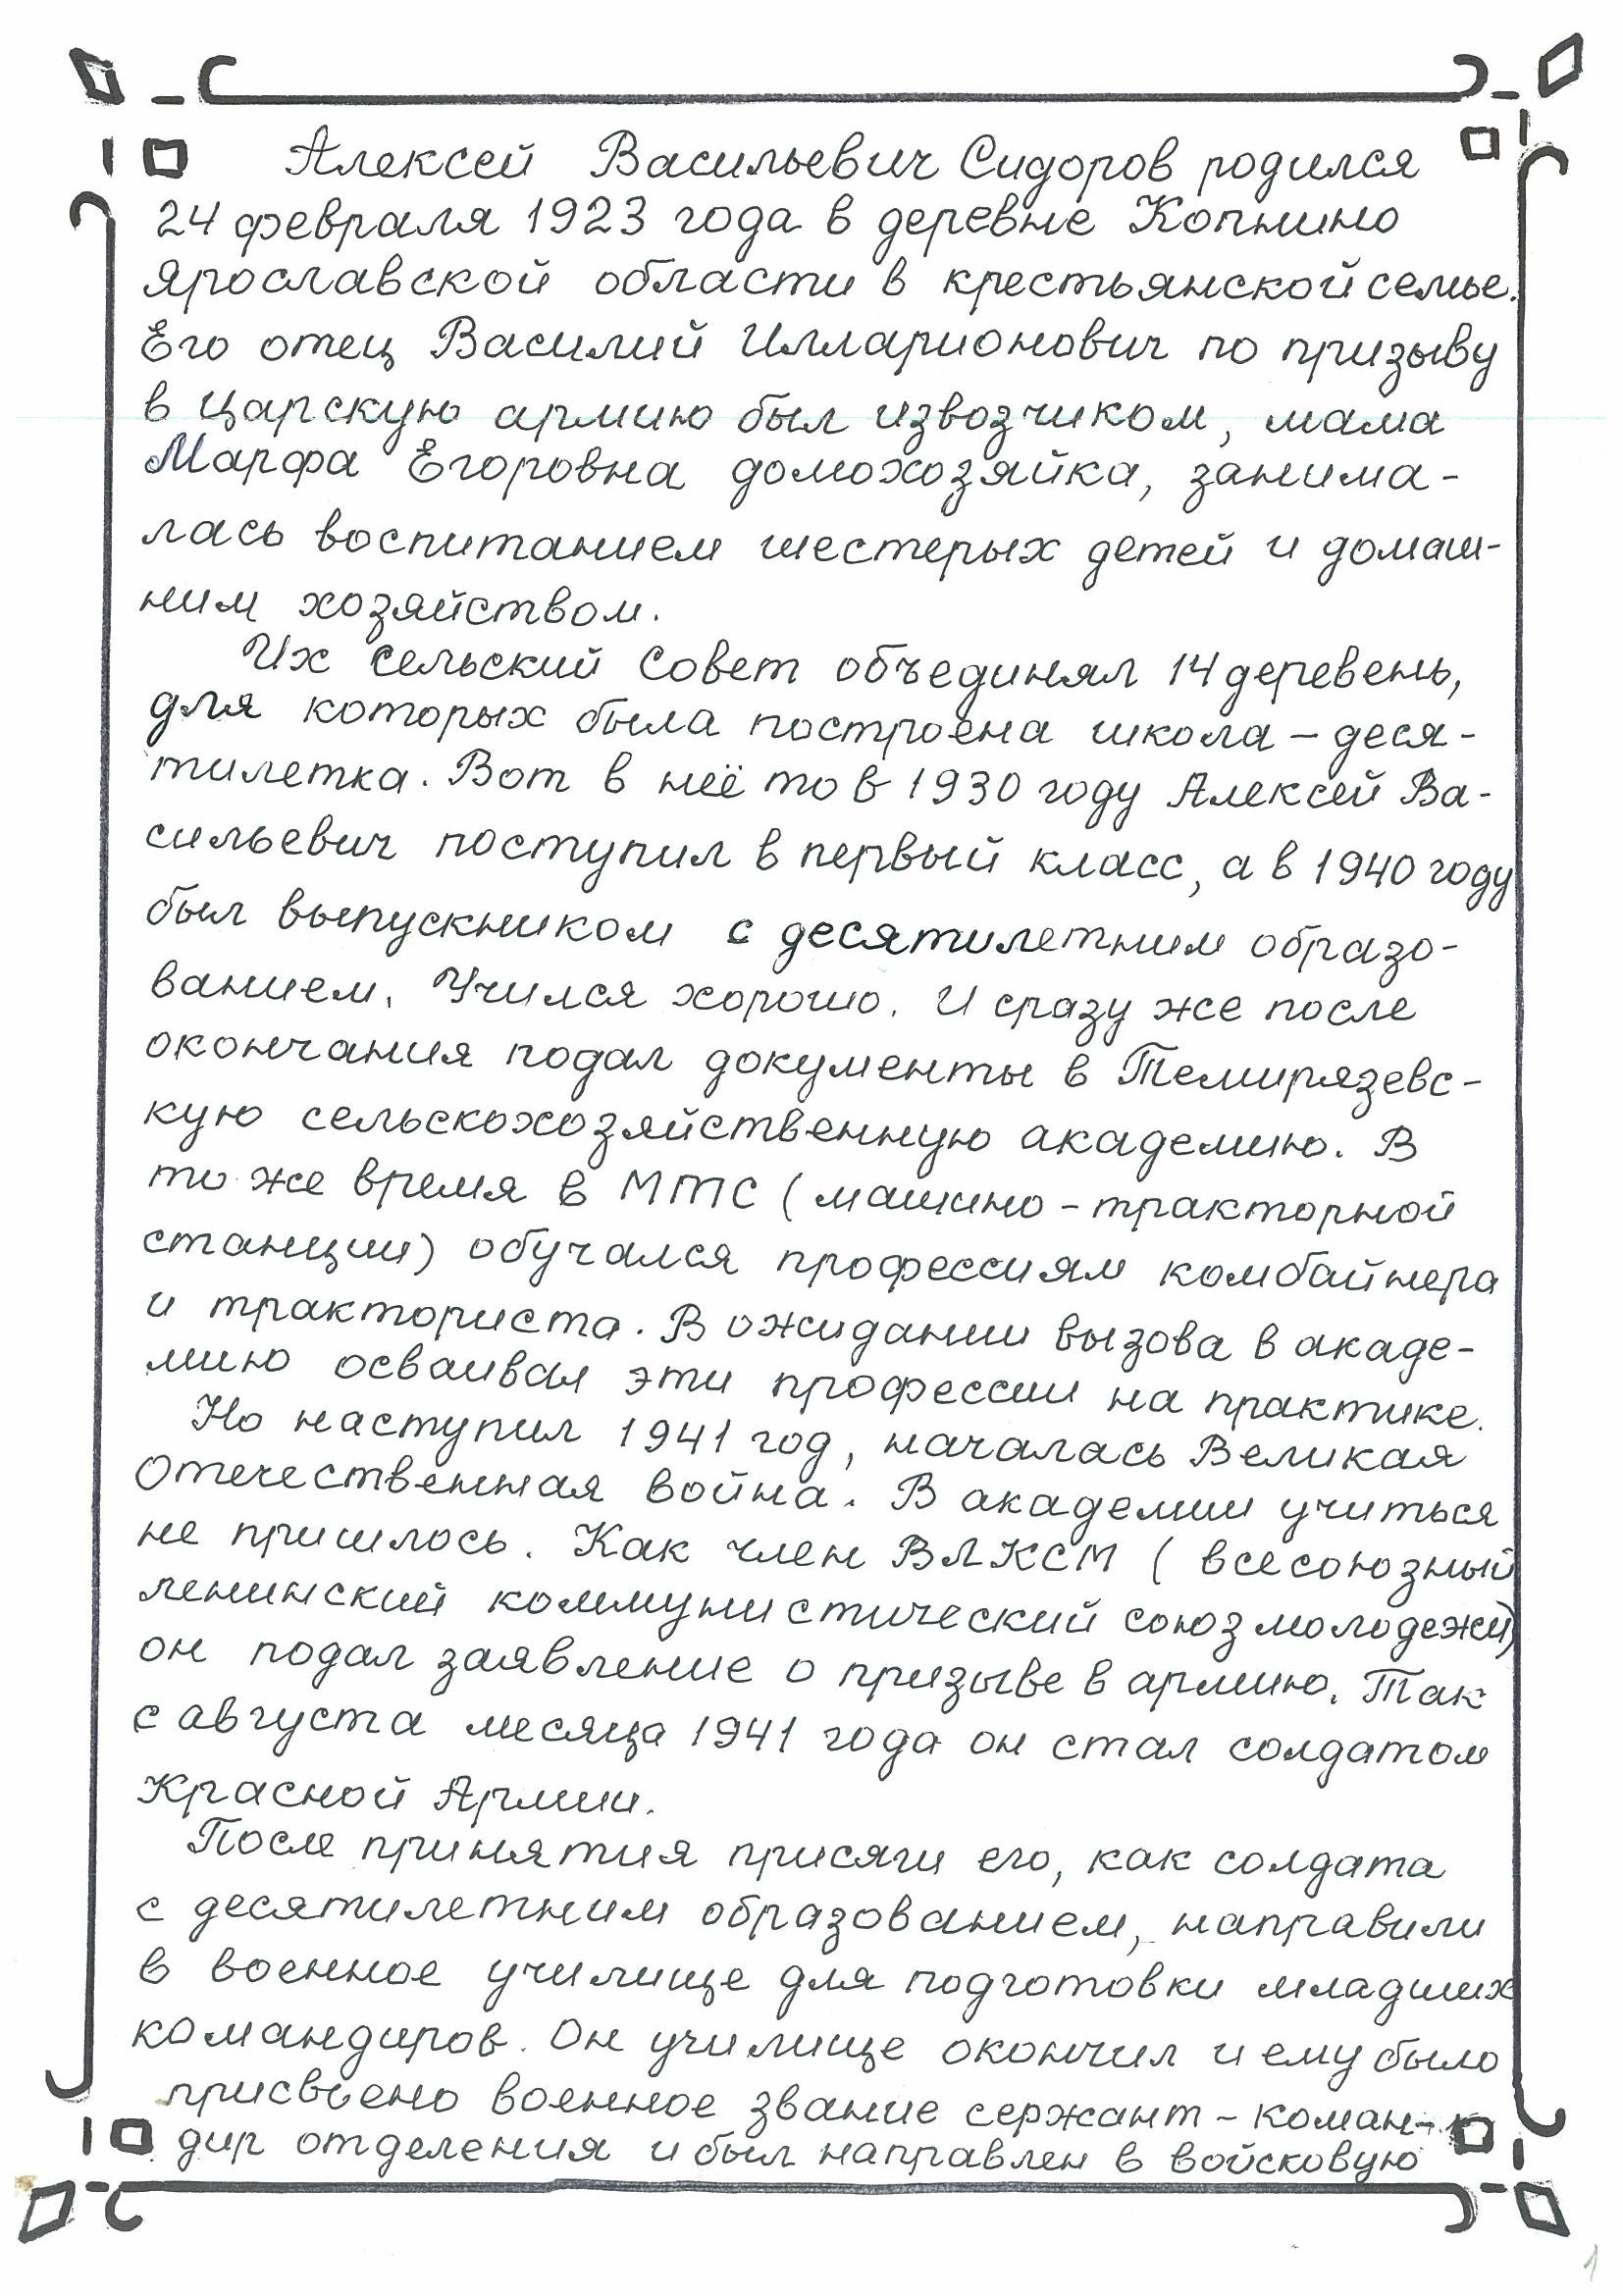 Алексей Васильевич Сидоров родился
24 февраля 1923 года в деревне Копнино
Ярославской области в крестьянской семье.
Его отец Василий Илларионович по призыву
в царскую армию был извозчиком, мама
Марфа Егоровна домохозяйка, занима-
лась воспитанием шестерых детей и домаш-
ним хозяйством.
Их сельский совет объединял 14 деревень,
для которых была построена школа – деся-
тилетка. Вот в неё то в 1930 году Алексей Ва-
сильевич поступил в первый класс, а в 1940 году
был выпускником с десятилетним образо-
ванием. Учился хорошо. И сразу же после
окончания подал документы в Темирязевс-
кую сельскохозяйственную академию. В
то же время в МТС (машино-тракторной
станции) обучался профессиям комбайнера
и тракториста. В ожидании вызова в акаде-
мию осваивал эти профессии на практике.
Но наступил 1941 год, началась Великая
Отечественная война. В академии учиться
не пришлось. Как член ВЛКСМ (всесоюзный
ленинский коммунистический союз молодежи)
он подал заявление о призыве в армию. Так
с августа месяца 1941 года он стал солдатом
Красной Армии.
После принятия присяги его, как солдата
с десятилетним образованием, направили
в военное училище для подготовки младших
командиров. Он училище окончил и ему было
присвоено военное звание сержант – коман-
дир отделения и был направлен в войсковую
1